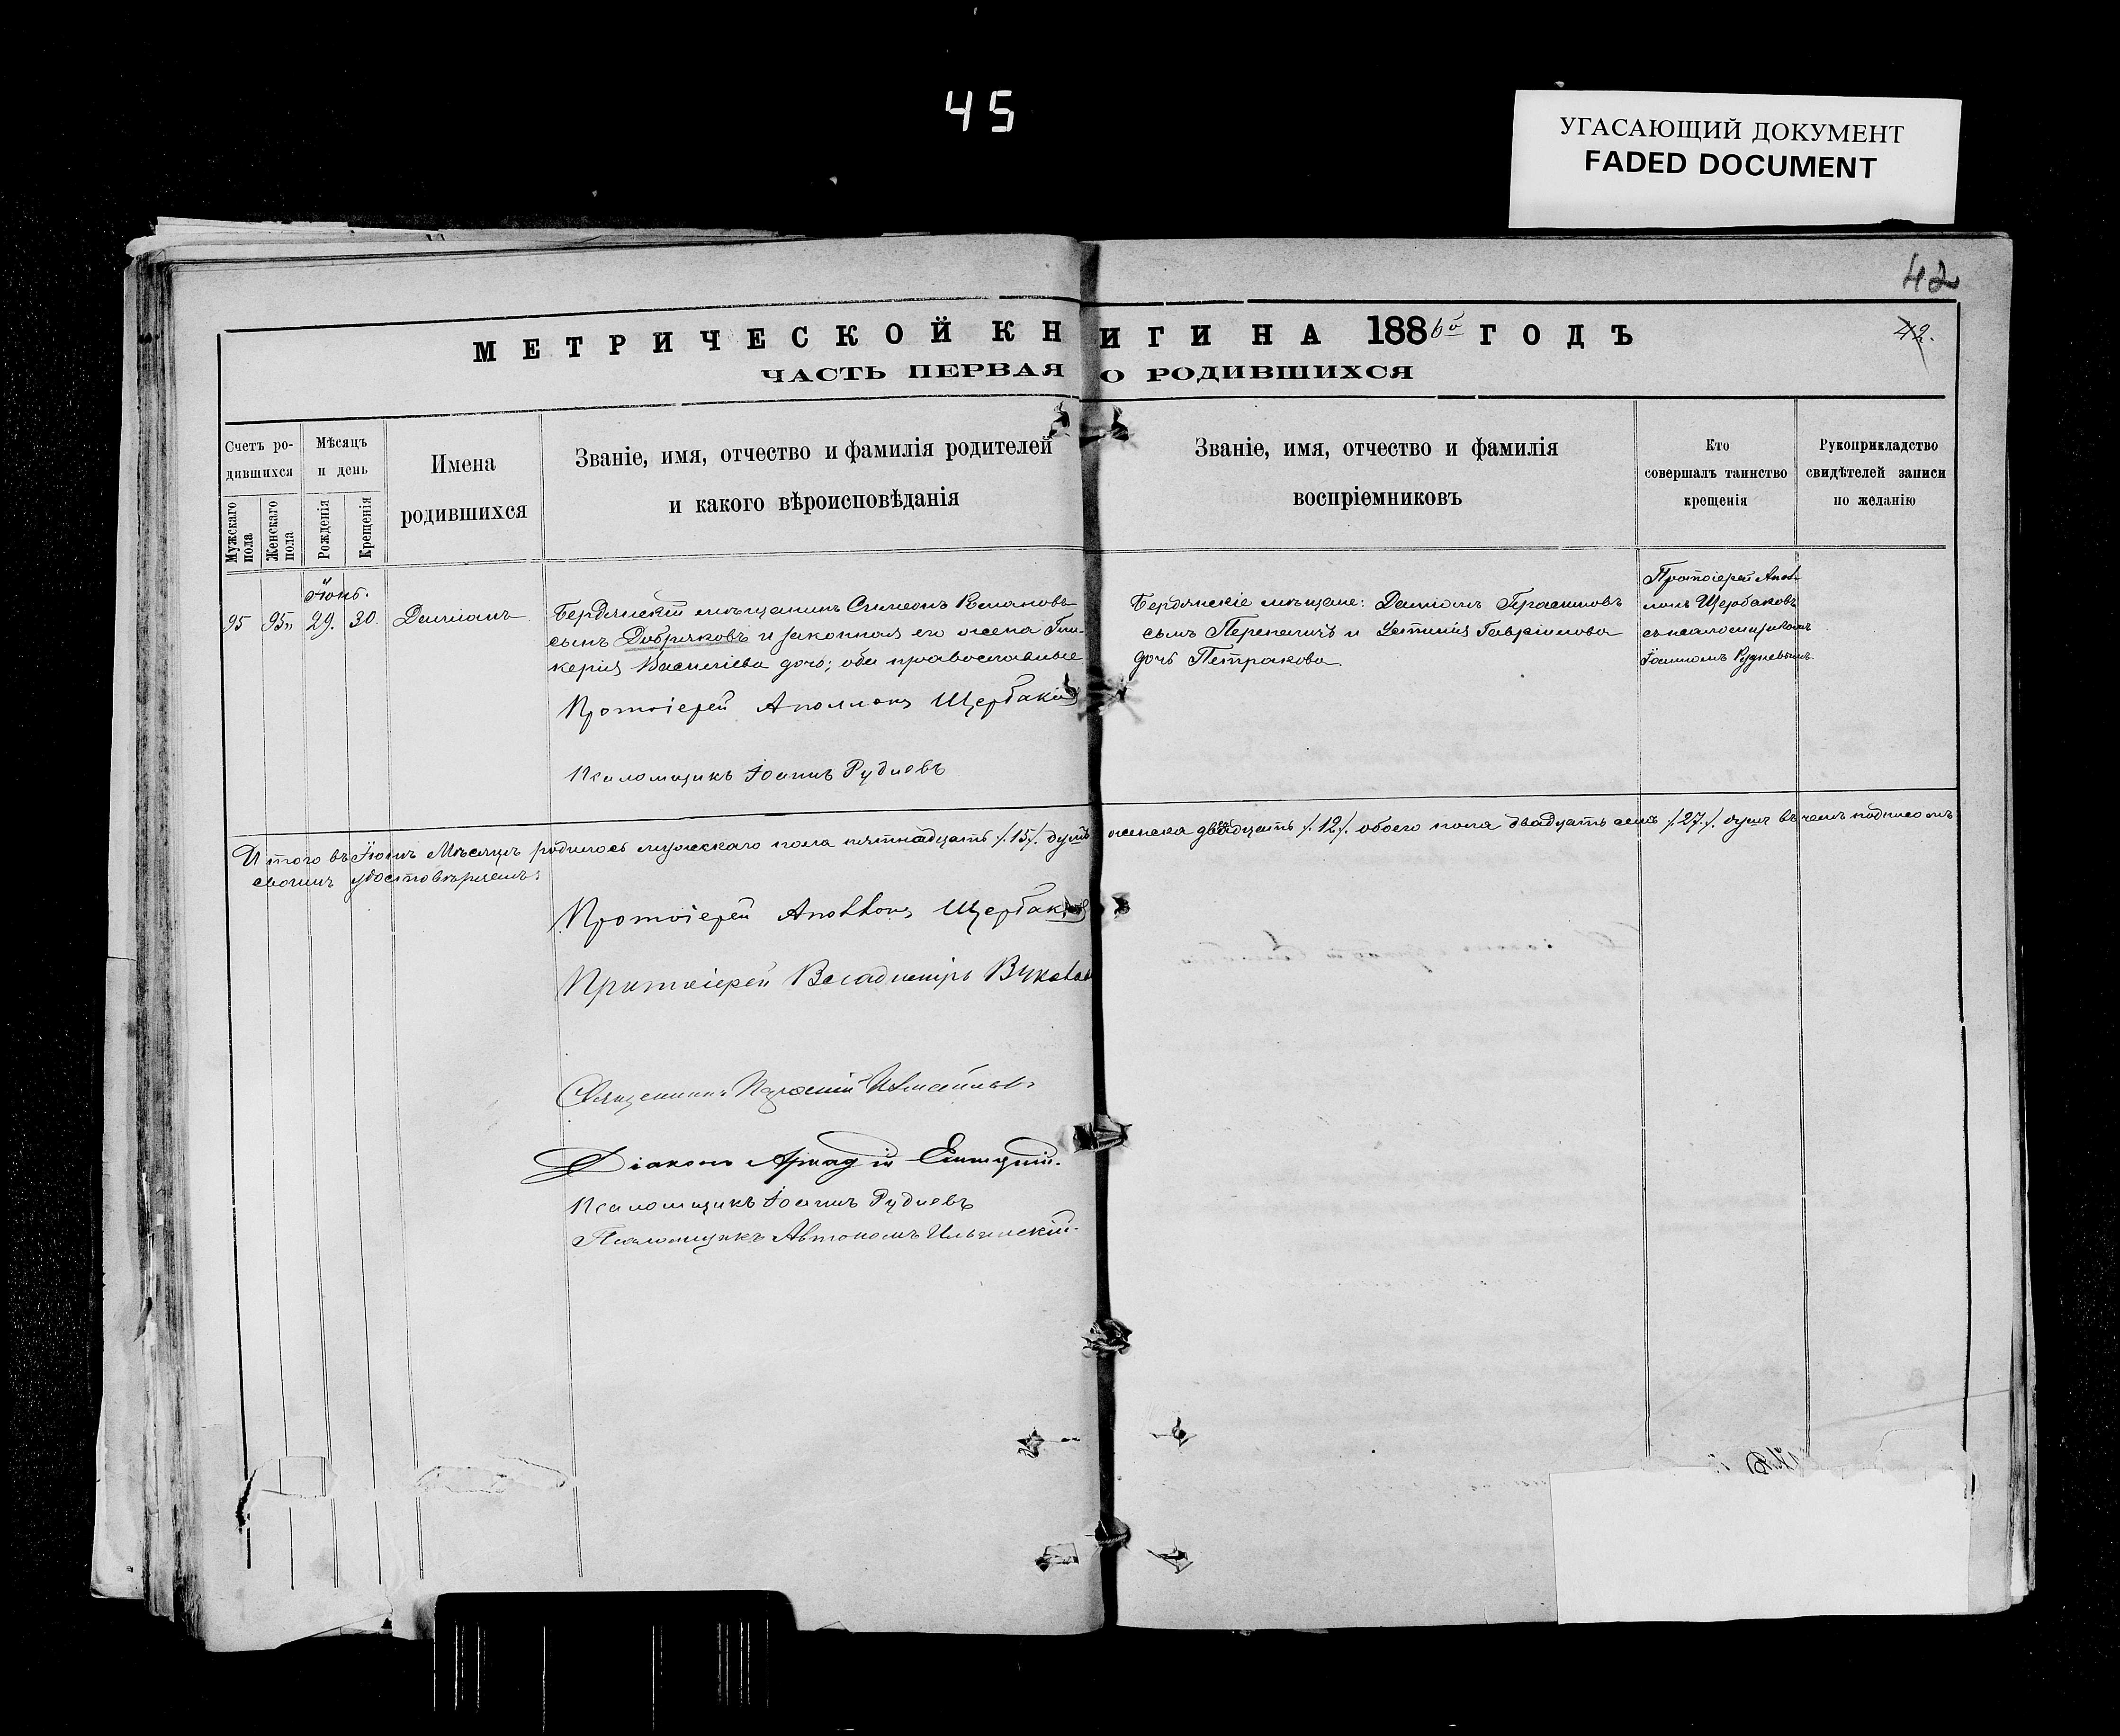 45
УГАСАЮЩИЙ ДОКУМЕНТ
FADED DOCUMENT
42
42.
МЕТРИЧЕСКОЙ КНИГИ НА 1886й ГОДЪ
ЧАСТЬ ПЕРВАЯ О РОДИВШИХСЯ
Счетъ ро-
дившихся
Мужскаго пола
Женскаго пола
Мѣсяцъ
и день
Рожденія
Крещенія
Имена
родившихся
Званіе, имя, отчество и фамилія родителей
и какого вѣроисповѣданія
Званіе, имя, отчество и фамилія
воспріемниковъ
Кто
совершалъ таинство
крещенія
Рукоприкладство
свидѣтелей записи
по желанію
Іюнь.
95 95„ 29. 30. Даміанъ
Бердянскій мѣщанинъ Симеонъ Романовъ
сынъ Добряковъ и законная его жена Гли-
керія Василіева дочь; оба православные
Бердянскіе мѣщане: Даміанъ Герасимовъ
сынъ и Устинія Гавріилова
дочь Петракова.
Протоіерей Апол-
лонъ Щербаковъ
съ псаломщикомъ
Іоанномъ Рудневымъ.
Протоіерей Аполлонъ Щербаковъ
Псаломщикъ Іоаннъ Рудневъ
Итого въ Іюнѣ Мѣсяцѣ родилось мужскаго пола пятнадцать /.15/. душъ женска двѣнадцать /.12/. обоего пола двадцать семь /.27./. душъ въ чемъ подписомъ
своимъ удостовѣряемъ:
Протоіерей Аполлонъ Щербаковъ
Протоіерей Владиміръ
Священникъ
Діаконъ Аркадій
Псаломщикъ Іоаннъ Рудневъ
Псаломщикъ Автономъ Ильинскій.